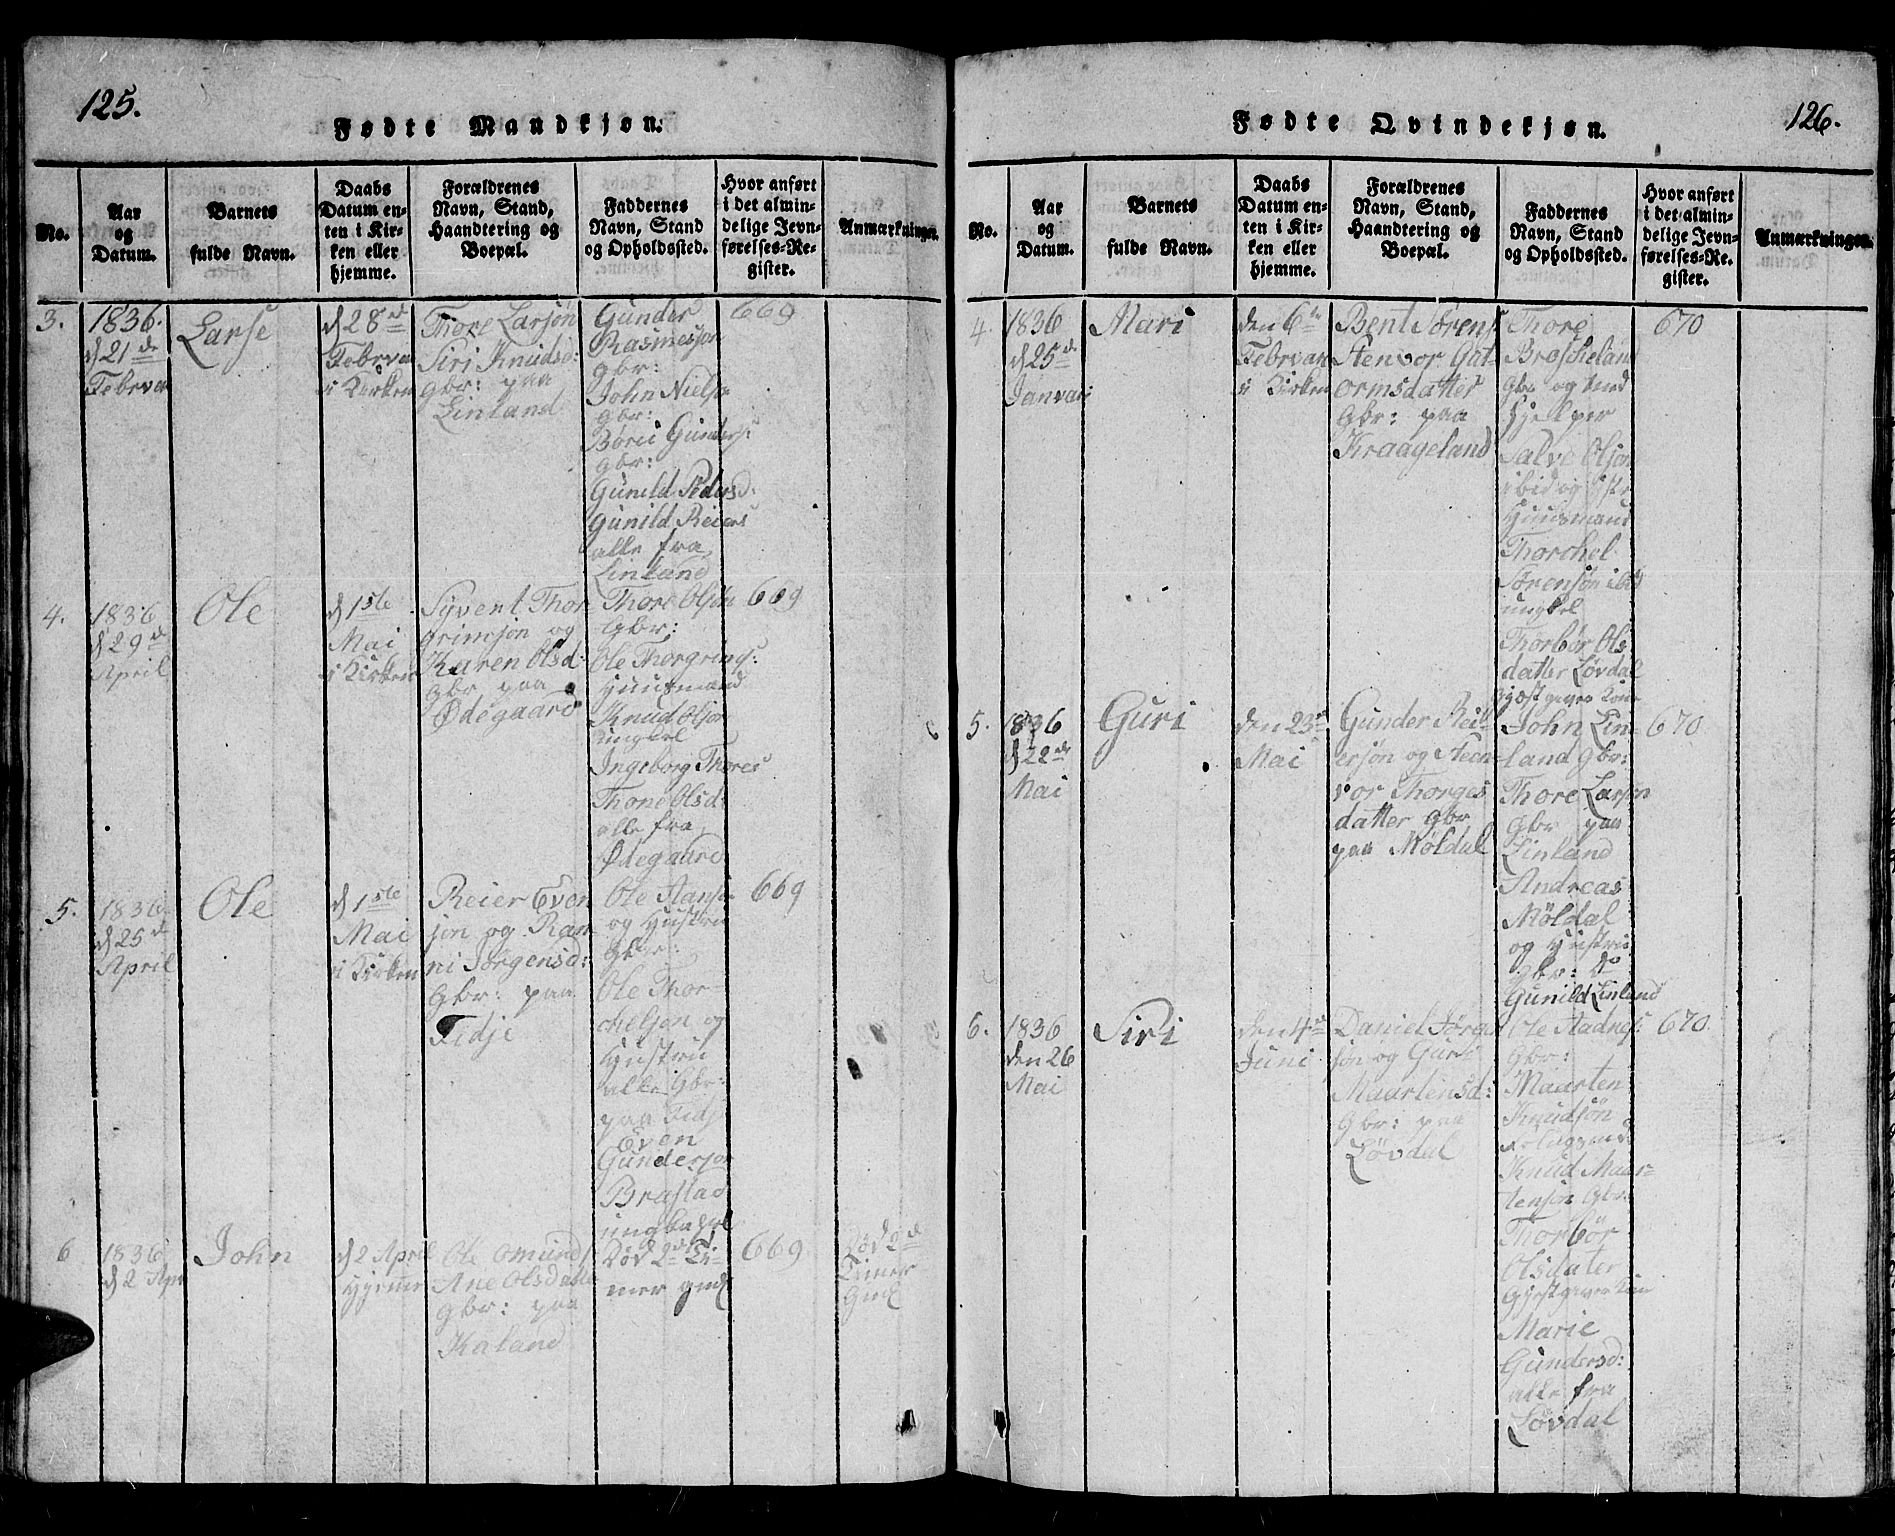 125.
Fødte Mandkjøn.
No.
Aar
og
Datum.
Barnets
fulde Navn.
Daabs
Datum en-
ten i Kir-
ken eller
hjemme.
Forældrenes
Navn, Stand,
Haandtering og
Boepæl.
Faddernes
Navn, Stand
og Opholdssted.
Hvor anført
i det almin-
delige Jevn-
førelses-Re-
gister.
Anmærkninger.
3.
1836.
d 21de
Februa
Larse
d 28d
Februa
i Kirken
Thore Larsøn
Siri Knudsd:
gbr: paa
Linland
Gunder
Rasmesøn
gbr:
John Niels
gbr:
Børei Gunders:
gbr:
Gunild Peders d:
Gunild Reiers
alle fra
Linland
669
4.
1836
d 29de
April
Ole
d 1ste
Mai
i Kirken
Syvent Thor
grimsøn og
Karen Olsd:
gbr paa
Ødegaard
Thore Olsøn
Gbr:
Ole Thorgrims:
Huusmand
Knud Olsøn
ungkel
Ingeborg Thores
Thone Olsd
alle fra
Ødegaard
669
5.
1836
d 25de
April
Ole
d 1ste
Mai
i Kirken
Reier Even
søn og Ran
ni Jørgensd:
Gbr: paa
Tidje
Ole
og Hustru
gbr:
Ole Thor-
chelsøn og
Hustru
alle Gbr:
paa Tidj
Even
Gundersøn
Brastad
669
6
1836
d 2 Apr
John
d 2 April
Hjemme
Ole Omunds
Ane Olsdatte
gbr: paa
Kaland
død 2de Ti-
mer gml
669
død 2de
Timer
Gml
126.
Fødte Qvindekjøn.
No.
Aar
og
Datum.
Barnets
fulde Navn.
Daabs
Datum en-
ten i Kir-
ken eller
hjemme.
Forældrenes
Navn, Stand,
Haandtering og
Boepæl.
Faddernes
Navn, Stand
og Opholdssted.
Hvor anført
i det almin-
delige Jevn-
førelses-Re-
gister.
Anmærkninger.
4.
1836
d 25de
Januari
Mari
den 6te
Februar
i Kirken
Bent Sørens
Stenvor Gut-
ormsdatter
Gbr: paa
Kraageland
Thore
Brøcheland
Gbr og
hjelper
Salve Olsøn
ibid og
Huusmand
Thorchel
Sørensøn ibid
ungkel
Thorbør Ols
datter Løvdal
Gjæstgiver Kone
670
5.
1836
d 22de
Mai
Guri
den 23de
Mai
Gunder Rei
ersøn og Steen-
vor Thorges
datter gbr
paa Møldal
John Lin
land Gbr:
Thore Larsøn
Gbr paa
Linland
Andreas
Møldal
og Hustru
Gbr: do
Gunild Linland
670
6.
1836
den 26
Mai
Siri
den 4de
Juni
Daniel Jørgen
søn og Guri
Maartensd:
Gbr: paa
Løvdal
Ole Aadnes:
Gbr:
Maarten
Knudsøn
Knud Maar-
tensøn Gbr:
Thorbør
Olsdater
Gjæstgiver Kone
Marie
Gundersd:
alle fra
Løvdal
670